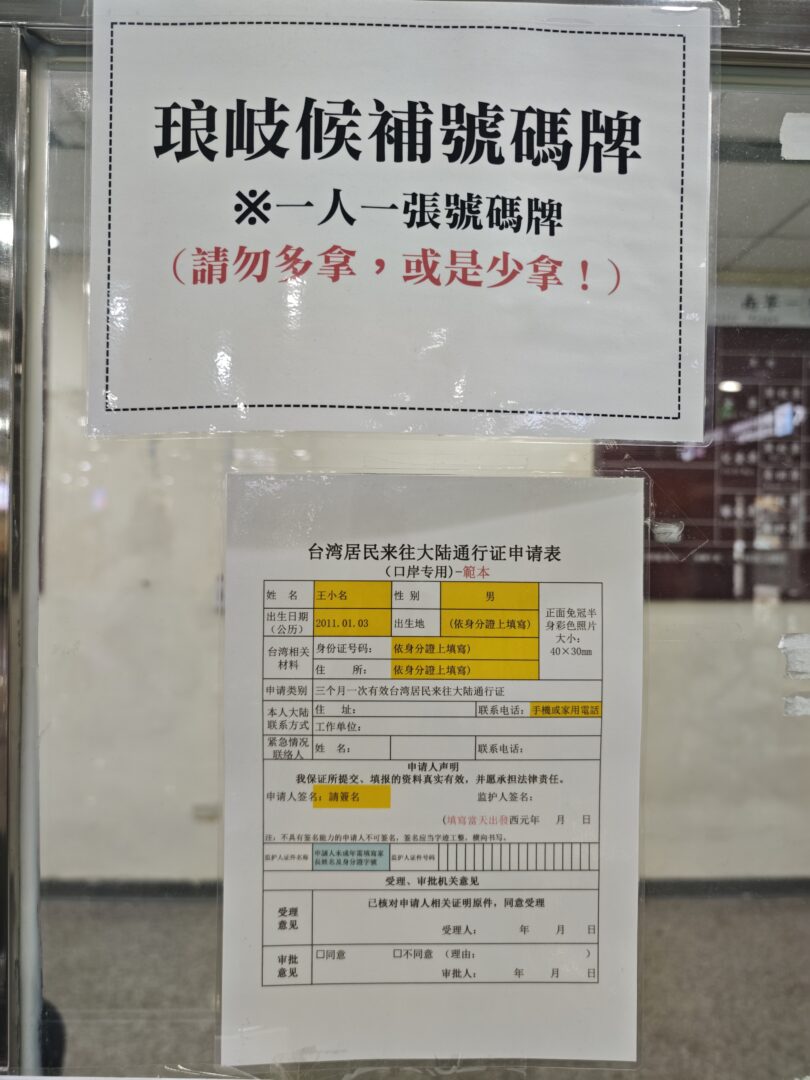 琅岐候補號碼牌
※一人一張號碼牌
（請勿多拿，或是少拿！）
台湾居民来往大陆通行证申请表
（口岸专用）-範本
姓 名 王小名 性 别 男
出生日期（公历） 2011.01.03 出生地 （依身分證上填寫）
正面免冠半身彩色照片
大小：
40×30mm
台湾相关材料 身份证号码： 依身分證上填寫）
住 所： 依身分證上填寫）
申请类别 三个月一次有效台湾居民来往大陆通行证
本人大陆联系方式 住 址： 联系电话： 手機或家用電話
工作单位：
紧急情况联络人 姓 名： 联系电话：
申请人声明
我保证所提交、填报的资料真实有效，并愿承担法律责任。
申请人签名：請簽名 监护人签名：
（填寫當天出發西元年 月 日
注：不具有签名能力的申请人不可签名，签名应当字迹工整，横向书写。
监护人证件名称 申請人未成年需填寫家長姓名及身分證字號 监护人证件号码
受理、审批机关意见
受理意见 已核对申请人相关证明原件，同意受理
受理人： 年 月 日
审批意见 □同意 □不同意 （理由： ）
审批人： 年 月 日